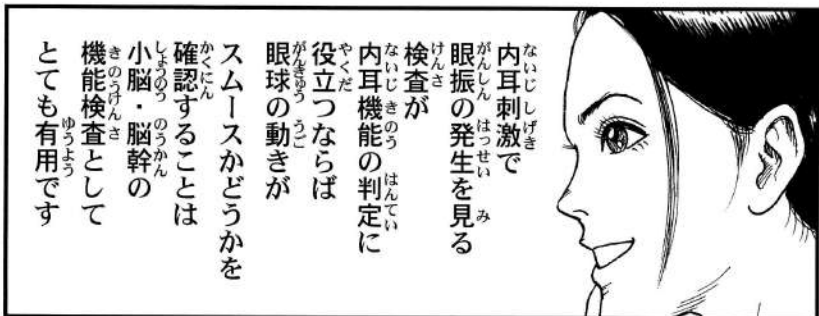 内耳刺激で
眼振の発生を見る
検査が
内耳機能の判定に
役立つならば
眼球の動きが
スムースかどうかを
確認することは
小脳・脳幹の
機能検査として
とても有用です